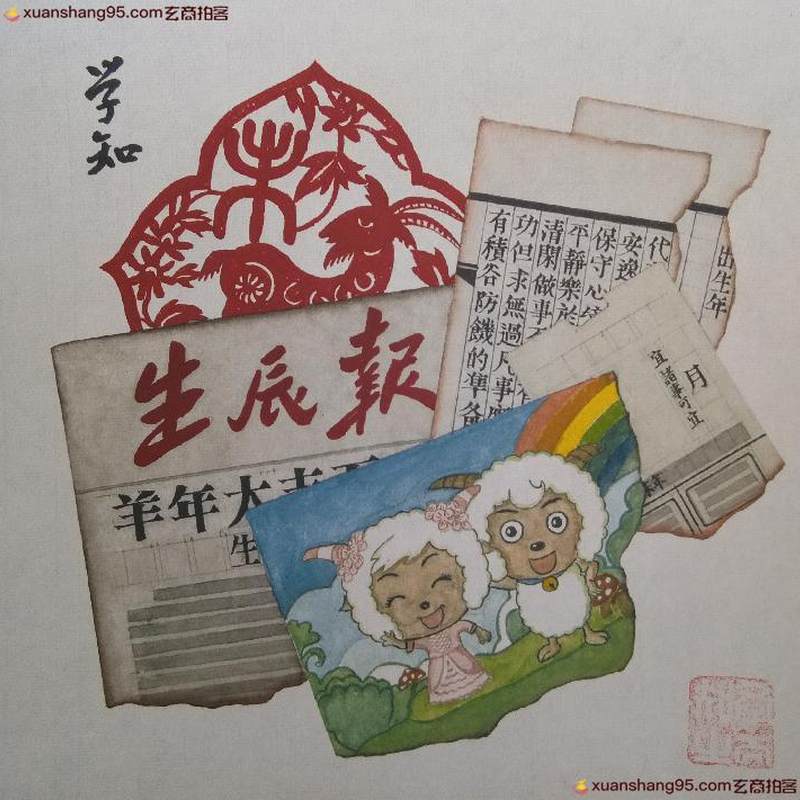 xuanshang95.com玄商拍客
学知
未
生辰報
羊年大吉
生
出生年
代
安逸
保守心
平靜樂於
清閑做事不
功但求無過凡事
有積谷防饑的準备
月
宜諸事可宜
年
xuanshang95.com玄商拍客